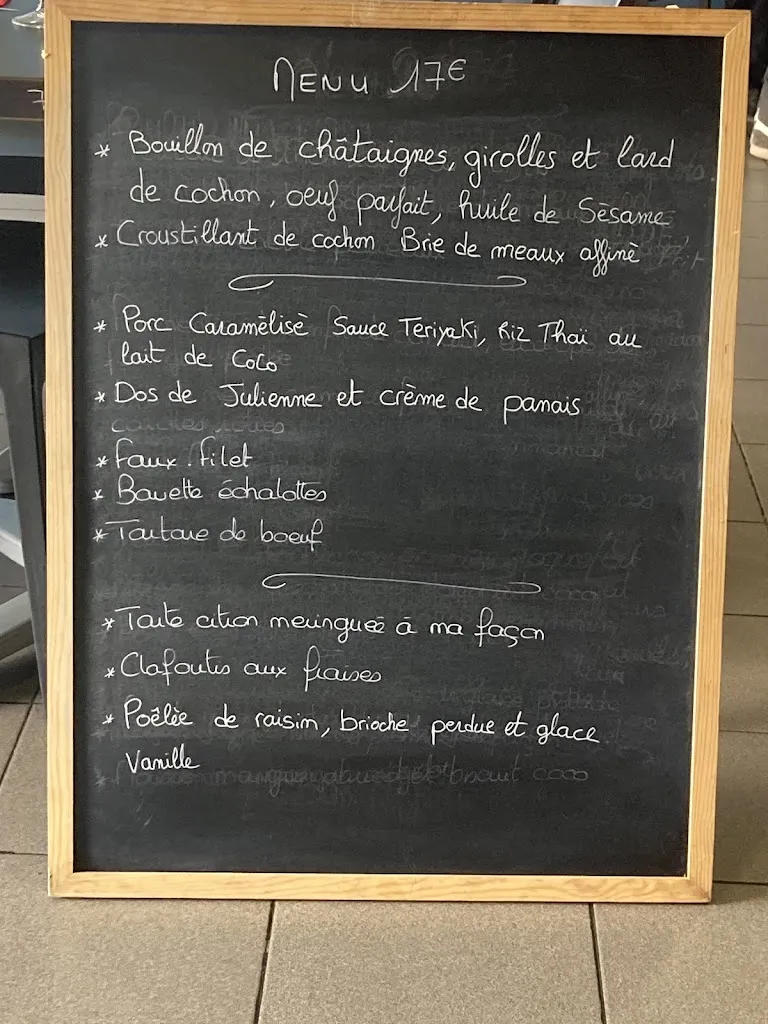 MENU 17€
* Bouillon de châtaignes, girolles et lard
de cochon, oeuf parfait, huile de Sésame
* Croustillant de cochon Brie de meaux affiné
* Porc Caramélisé Sauce Teriyaki, Riz Thaï au
lait de Coco
* Dos de Julienne et crème de panais
* Faux.filet
* Bavette échalottes
* Tartare de boeuf
* Tarte citron meringueé à ma façon
* Clafoutis aux fraises
* Poêlèe de raisin, brioche perdue et glace
Vanille